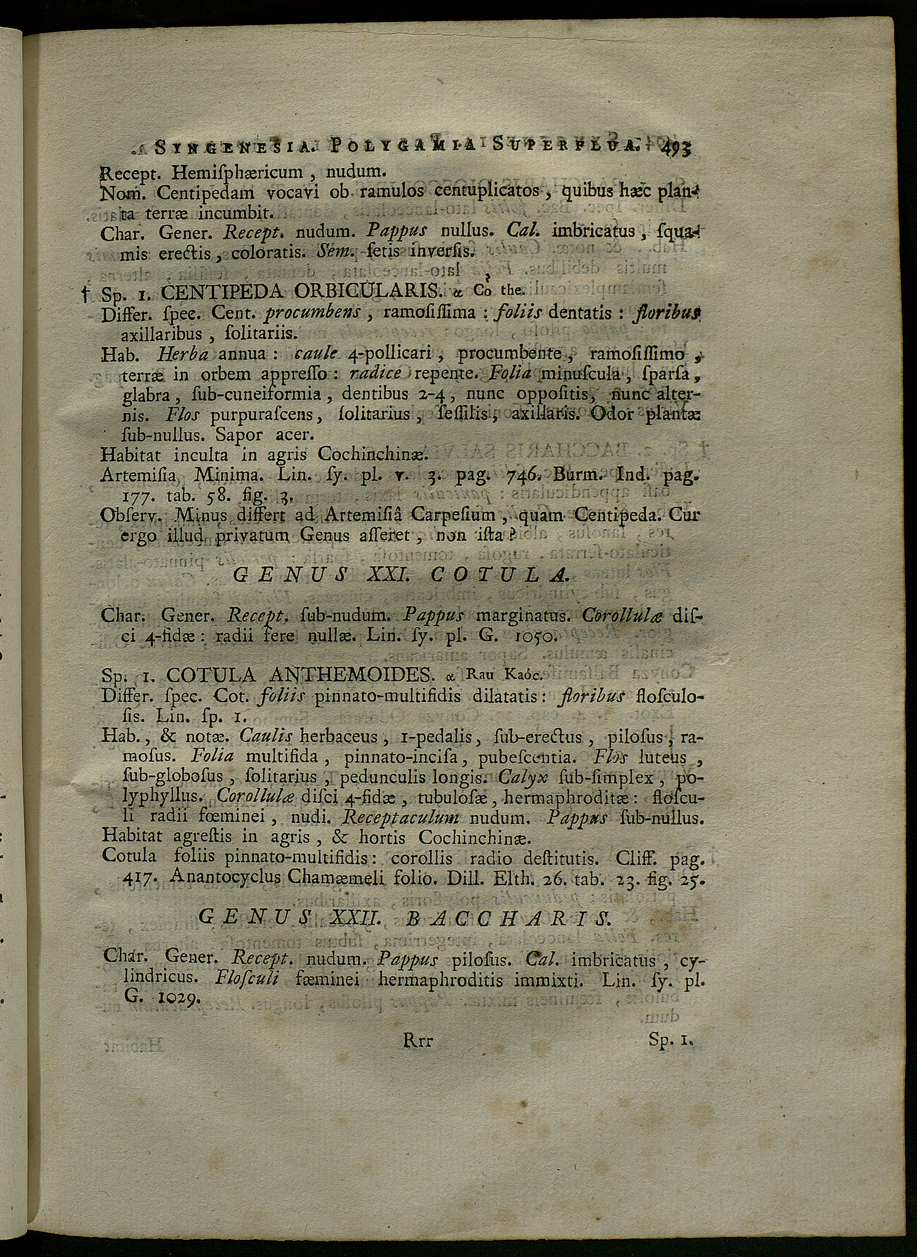 SYNGENESIA. POLYGAMIA SUPERFLUA. 493
Recept. Hemiſphæricum, nudum.
Nom. Centipedam vocavi ob ramulos centuplicatos, quibus hæc plan-
ta terræ incumbit.
Char. Gener. Recept. nudum. Pappus nullus. Cal. imbricatus, ſqua-
mis erectis, coloratis. Sem. ſetis inverſis.
† Sp. 1. CENTIPEDA ORBICULARIS. α Cỏ the.
Differ. ſpec. Cent. procumbens, ramoſiſſima: foliis dentatis: floribus
axillaribus, ſolitariis.
Hab. Herba annua: caule 4-pollicari, procumbente, ramoſiſſimo,
terræ in orbem appreſſo: radice repente. Folia minuſcula, ſparſa,
glabra, ſub-cuneiformia, dentibus 2-4, nunc oppoſitis, nunc alter-
nis. Flos purpuraſcens, ſolitarius, ſeſſilis, axillaris. Odor plantæ
ſub-nullus. Sapor acer.
Habitat inculta in agris Cochinchinæ.
Artemiſia Minima. Lin. ſy. pl. v. 3. pag. 746. Burm. Ind. pag.
177. tab. 58. fig. 3.
Obſerv. Minus differt ad Artemiſiâ Carpeſium, quam Centipeda. Cur
ergo illud privatum Genus aſſeret, non iſta?
GENUS XXI. COTULA.
Char. Gener. Recept. ſub-nudum. Pappus marginatus. Corollulæ diſ-
ci 4-fidæ: radii fere nullæ. Lin. ſy. pl. G. 1050.
Sp. 1. COTULA ANTHEMOIDES. α Rau Kaóc.
Differ. ſpec. Cot. foliis pinnato-multifidis dilatatis: floribus floſculo-
ſis. Lin. ſp. 1.
Hab., & notæ. Caulis herbaceus, 1-pedalis, ſub-erectus, piloſus, ra-
moſus. Folia multifida, pinnato-inciſa, pubeſcentia. Flos luteus,
ſub-globoſus, ſolitarius, pedunculis longis. Calyx ſub-ſimplex, po-
lyphyllus. Corollulæ diſci 4-fidæ, tubuloſæ, hermaphroditæ: floſcu-
li radii fœminei, nudi. Receptaculum nudum. Pappus ſub-nullus.
Habitat agreſtis in agris, & hortis Cochinchinæ.
Cotula foliis pinnato-multifidis: corollis radio deſtitutis. Cliff. pag.
417. Anantocyclus Chamæmeli folio. Dill. Elth. 26. tab. 23. fig. 25.
GENUS XXII. BACCHARIS.
Char. Gener. Recept. nudum. Pappus piloſus. Cal. imbricatus, cy-
lindricus. Floſculi fæminei hermaphroditis immixti. Lin. ſy. pl.
G. 1029.
Rrr Sp. 1.